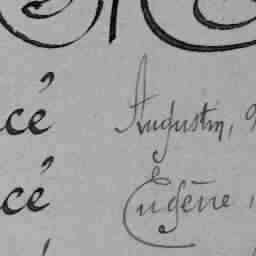 cé Augustin,
cé Eugène,